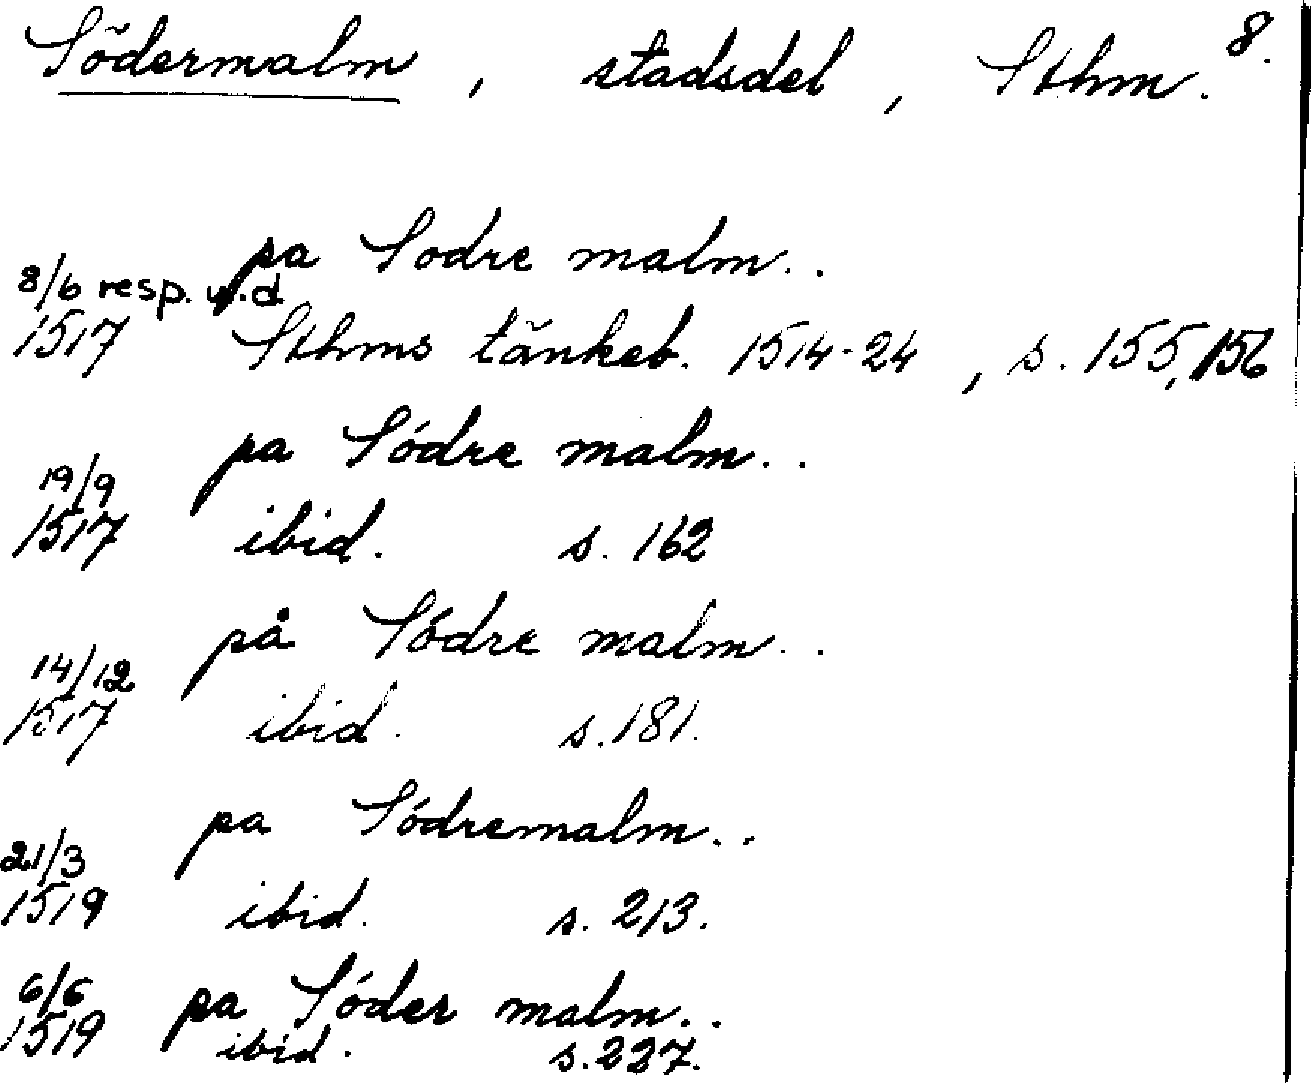 Södermalm, stadsdel, Sthm. 8.
pa Sodre malm..
8/6 resp. u.d
1517 Sthms tänkeb. 1514-24, s. 155, 156
pa Sódre malm..
19/9
1517 ibid. s. 162
på Sódre malm..
14/12
1517 ibid. s. 181.
pa Sódremalm..
21/3
1519 ibid. s. 213.
6/6 pa Sóder malm..
1519 ibid. s. 227.